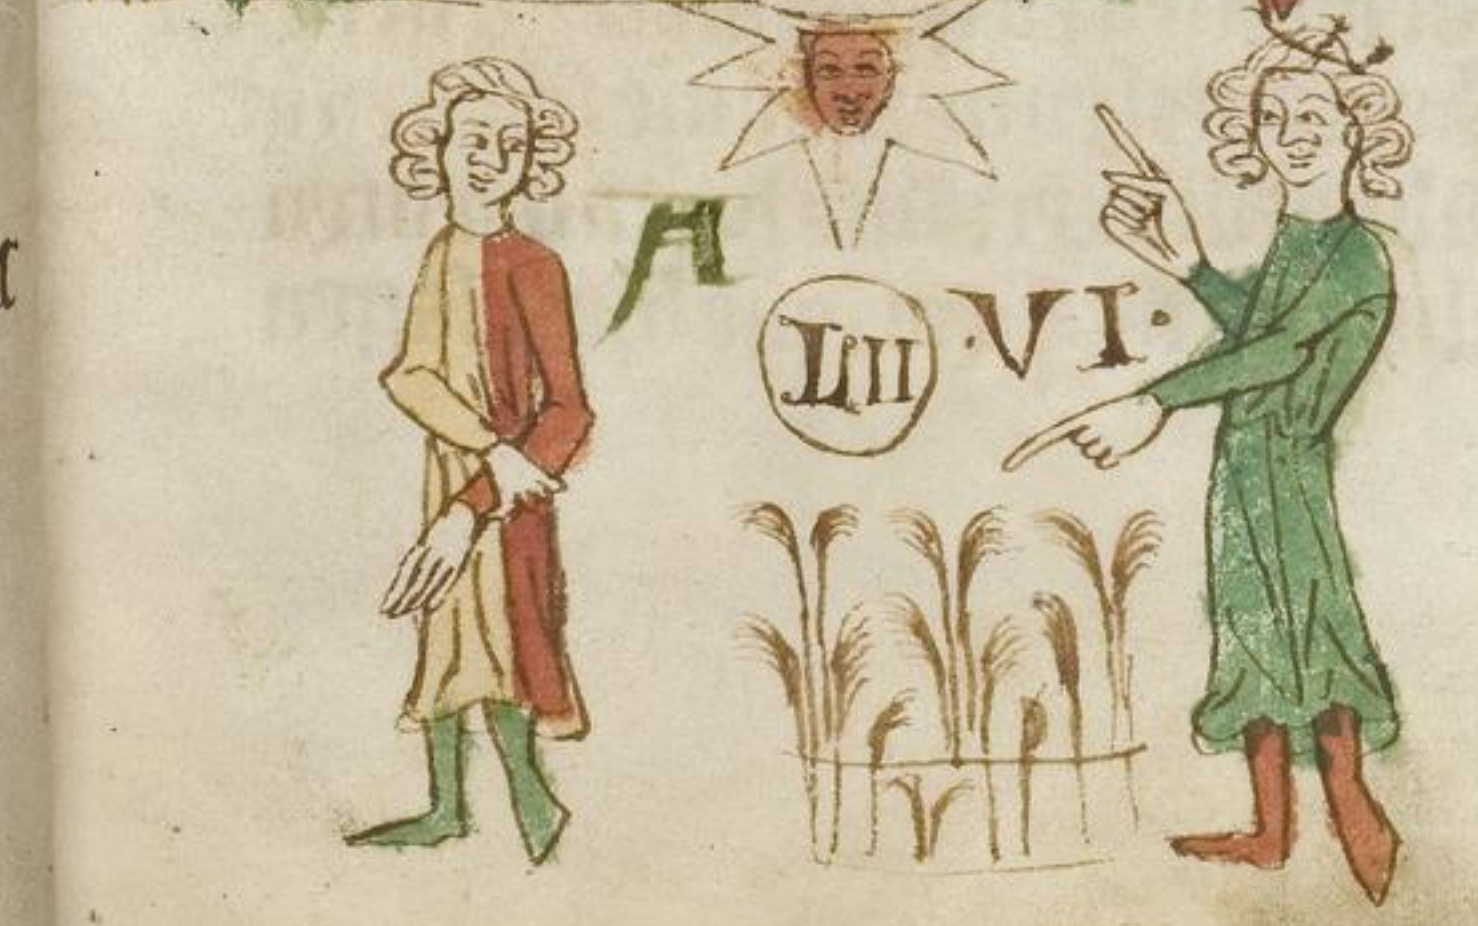 A
LII ·VI·